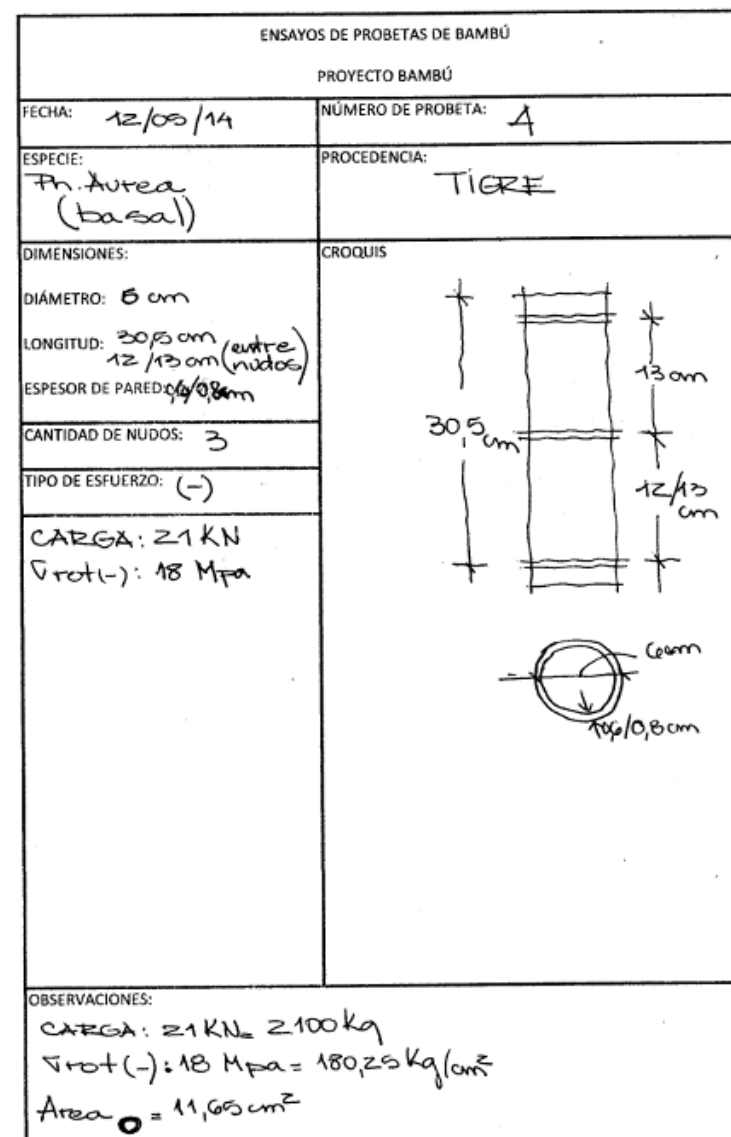 ENSAYOS DE PROBETAS DE BAMBÚ
PROYECTO BAMBÚ
FECHA: 12/05/14
NÚMERO DE PROBETA: 4
ESPECIE:
Ph. Aurea
(basal)
PROCEDENCIA:
TIGRE
DIMENSIONES:
DIÁMETRO: 6 cm
LONGITUD: 30,5 cm
12/13 cm (entre nudos)
ESPESOR DE PARED: 0,6/0,8cm
CANTIDAD DE NUDOS: 3
TIPO DE ESFUERZO: (-)
CARGA: 21 KN
σrot(-): 18 Mpa
CROQUIS
13 cm
30,5 cm
12/13
cm
6cm
0,6/0,8 cm
OBSERVACIONES:
CARGA: 21 KN= 2100 kg
σrot(-): 18 Mpa = 180,25 Kg/cm²
Area = 11,65 cm²